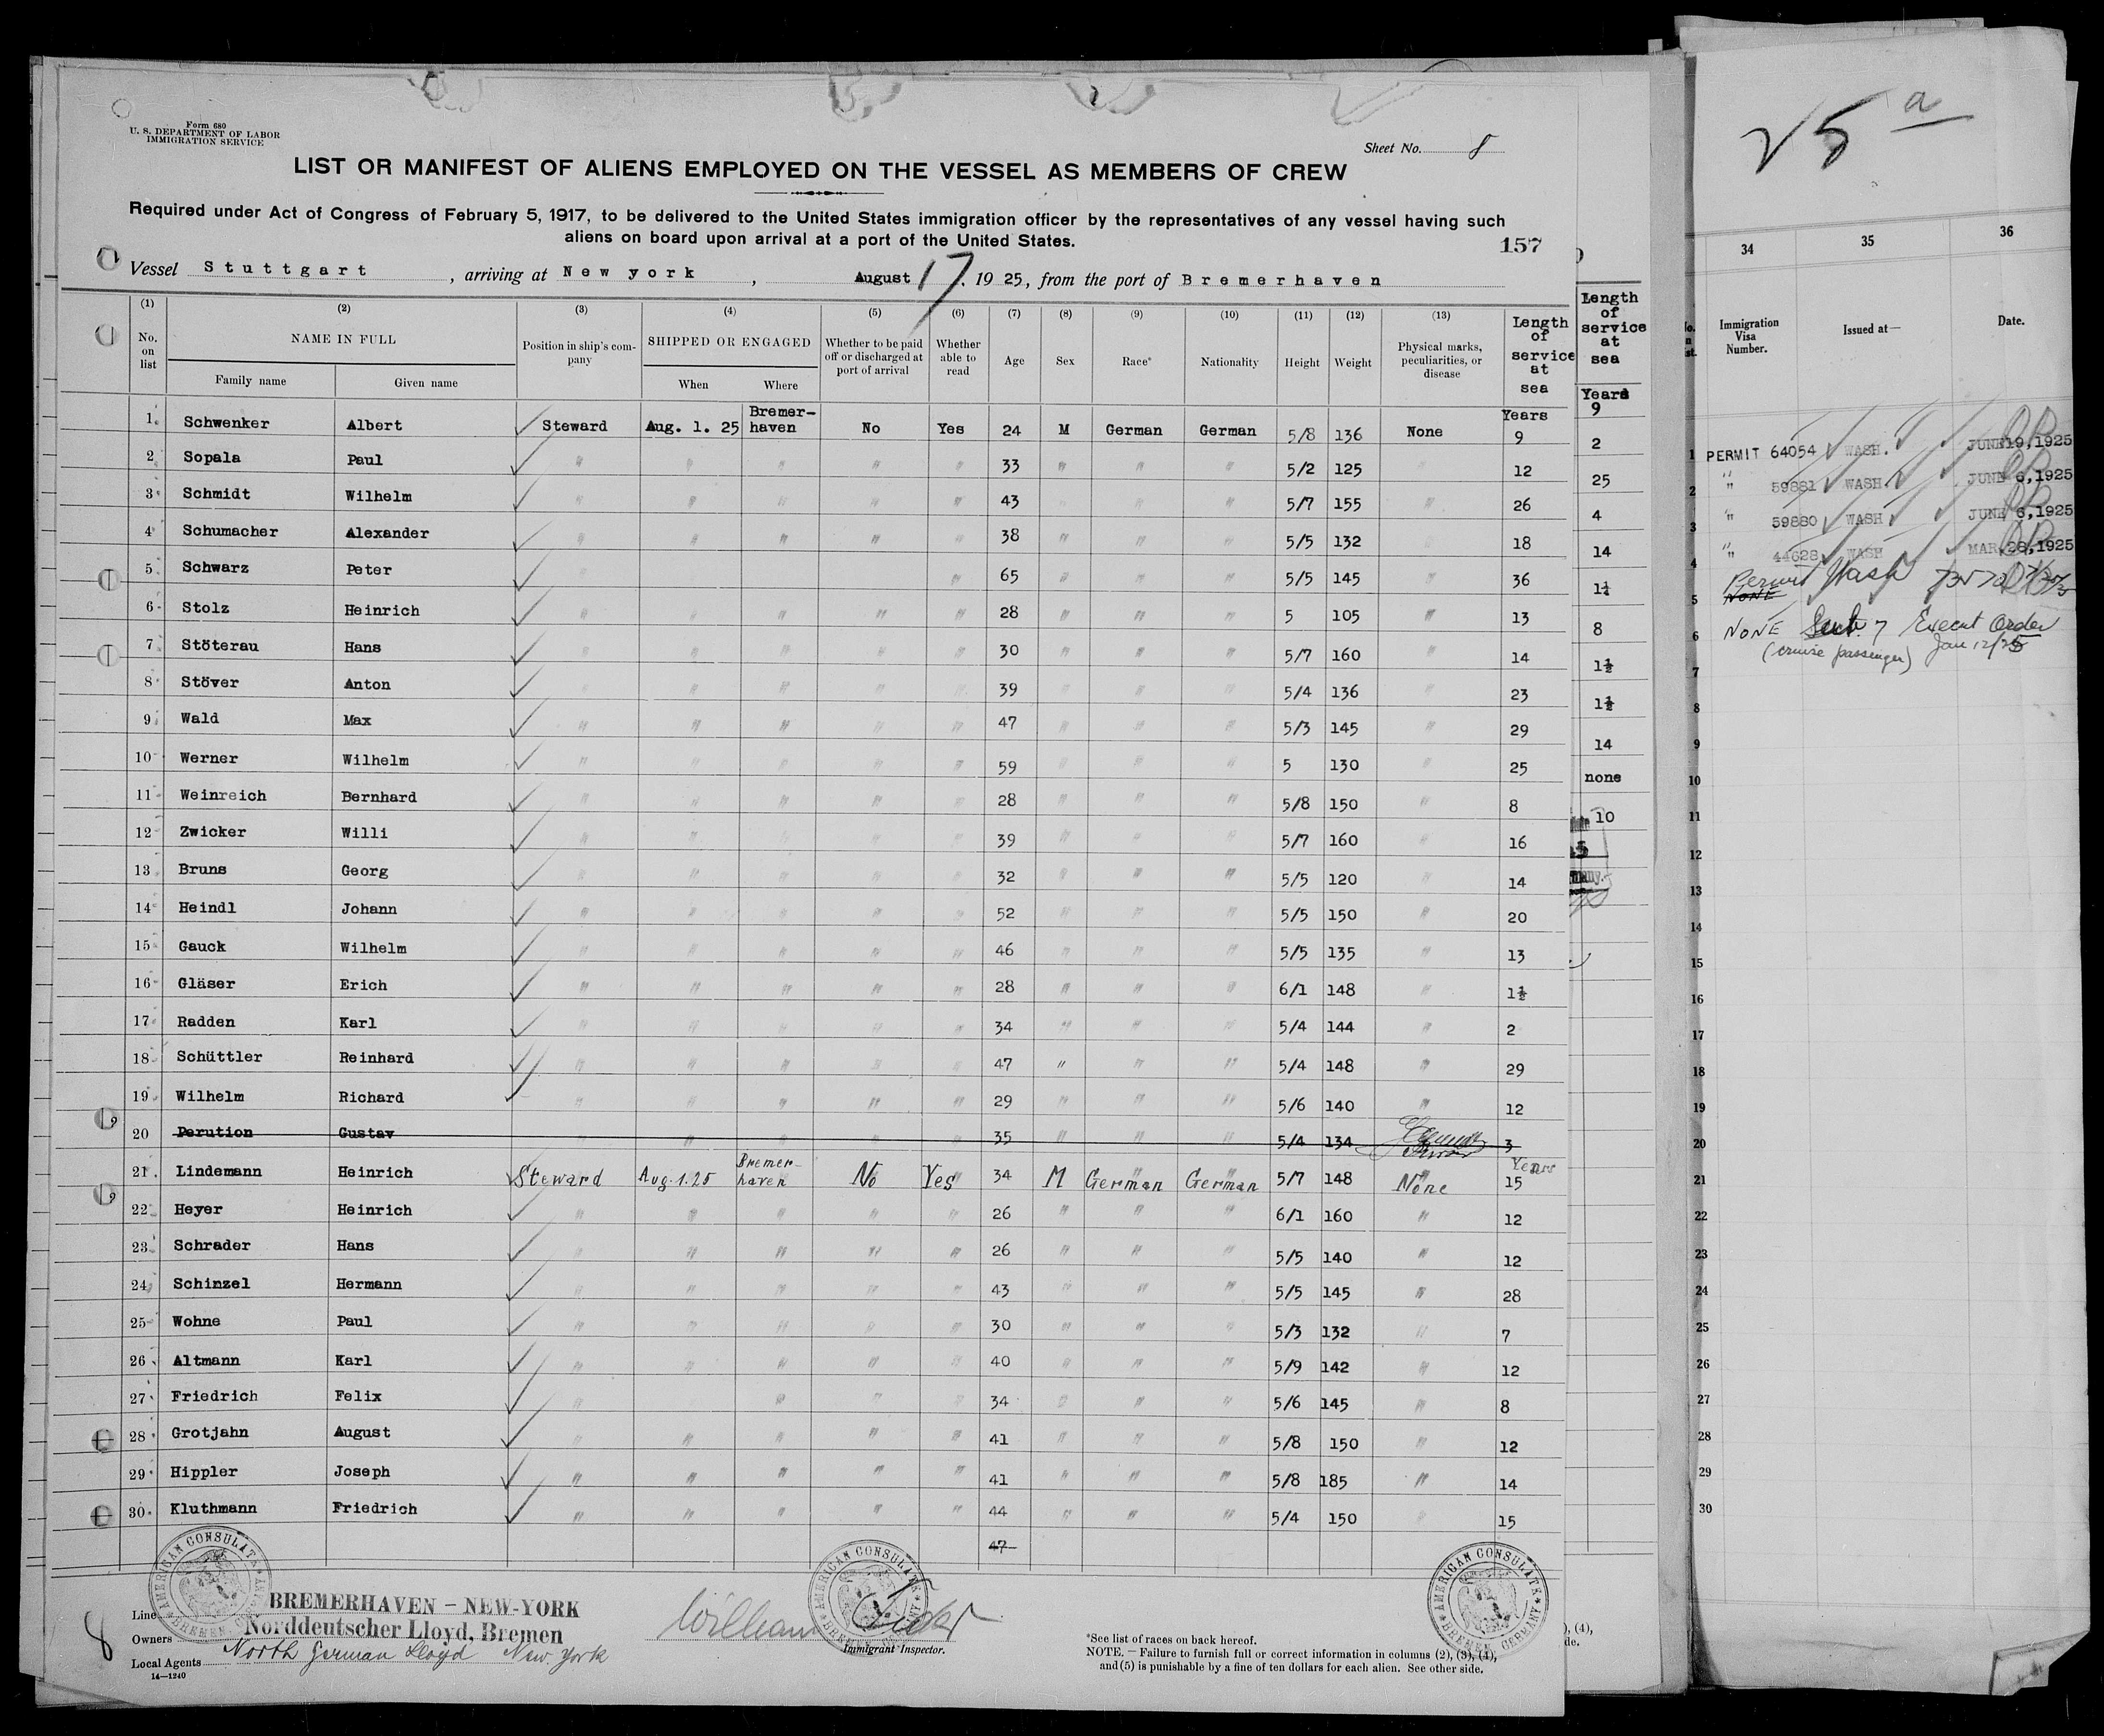 Form 680
U. S. DEPARTMENT OF LABOR
IMMIGRATION SERVICE
Sheet No. 8
LIST OR MANIFEST OF ALIENS EMPLOYED ON THE VESSEL AS MEMBERS OF CREW
Required under Act of Congress of February 5, 1917, to be delivered to the United States immigration officer by the representatives of any vessel having such
aliens on board upon arrival at a port of the United States.
157
Vessel Stuttgart, arriving at New york, August 17, 1925, from the port of Bremerhaven
(1) (2) (3) (4) (5) (6) (7) (8) (9) (10) (11) (12) (13)
No. on list NAME IN FULL Family name Given name Position in ship's company SHIPPED OR ENGAGED When Where Whether to be paid off or discharged at port of arrival Whether able to read Age Sex Race* Nationality Height Weight Physical marks, peculiarities, or disease Length of service at sea
Years
1 Schwenker Albert Steward Aug. 1. 25 Bremerhaven No Yes 24 M German German 5/8 136 None 9
2 Sopala Paul " " " " " 33 " " " 5/2 125 " 12
3 Schmidt Wilhelm " " " " " 43 " " " 5/7 155 " 26
4 Schumacher Alexander " " " " " 38 " " " 5/5 132 " 18
5 Schwarz Peter " 65 " " " 5/5 145 " 36
6 Stolz Heinrich " " " " " 28 " " " 5 105 " 13
7 Stöterau Hans " " " " " 30 " " " 5/7 160 " 14
8 Stöver Anton " " " " " 39 " " " 5/4 136 " 23
9 Wald Max " " " " " 47 " " " 5/3 145 " 29
10 Werner Wilhelm " " " " " 59 " " " 5 130 " 25
11 Weinreich Bernhard " " " " " 28 " " " 5/8 150 " 8
12 Zwicker Willi " " " " " 39 " " " 5/7 160 " 16
13 Bruns Georg " " " " " 32 " " " 5/5 120 " 14
14 Heindl Johann " " " " " 52 " " " 5/5 150 " 20
15 Gauck Wilhelm " " " " " 46 " " " 5/5 135 " 13
16 Gläser Erich " " " " " 28 " " " 6/1 148 " 1½
17 Radden Karl " " " " " 34 " " " 5/4 144 " 2
18 Schüttler Reinhard " " " " " 47 " " " 5/4 148 " 29
19 Wilhelm Richard " " " " " 29 " " " 5/6 140 " 12
20 Perution Gustav " " " " 35 " " " 5/4 134 3
Years
21 Lindemann Heinrich Steward Aug. 1. 25 Bremerhaven No Yes 34 M German German 5/7 148 None 15
22 Heyer Heinrich " " " " " 26 " " " 6/1 160 " 12
23 Schrader Hans " " " " " 26 " " " 5/5 140 " 12
24 Schinzel Hermann " " " " " 43 " " " 5/5 145 " 28
25 Wohne Paul " " " " " 30 " " " 5/3 132 " 7
26 Altmann Karl " " " " " 40 " " " 5/9 142 " 12
27 Friedrich Felix " " " " 34 " " " 5/6 145 " 8
28 Grotjahn August " " " " " 41 " " " 5/8 150 " 12
29 Hippler Joseph " " " " " 41 " " " 5/8 185 " 14
30 Kluthmann Friedrich " " " " " 44 " " " 5/4 150 " 15
47
AMERICAN CONSULATE BREMEN, GERMANY
AMERICAN CONSULATE BREMEN, GERMANY
AMERICAN CONSULATE BREMEN, GERMANY
8
Line BREMERHAVEN – NEW-YORK
Owners Norddeutscher Lloyd, Bremen
Local Agents North German Lloyd New York
14—1240
William
Immigrant Inspector.
*See list of races on back hereof.
NOTE. — Failure to furnish full or correct information in columns (2), (3), (4),
and (5) is punishable by a fine of ten dollars for each alien. See other side.
Length of service at sea
Years
9
2
25
4
14
1¼
8
1½
1½
14
none
10
, (4),
de.
25 a
34 35 36
Immigration Visa Number. Issued at— Date.
1 PERMIT 64054 WASH. JUNE 19, 1925
2 " 59881 WASH. JUNE 6, 1925
3 " 59880 WASH JUNE 6, 1925
4 " 44628 WASH MAR. 28, 1925
5 NONE Permit Wash
6 NONE Sect. 7 Execut Order
(cruise passenger) Jan 12/25
7
8
9
10
11
12
13
14
15
16
17
18
19
20
21
22
23
24
25
26
27
28
29
30